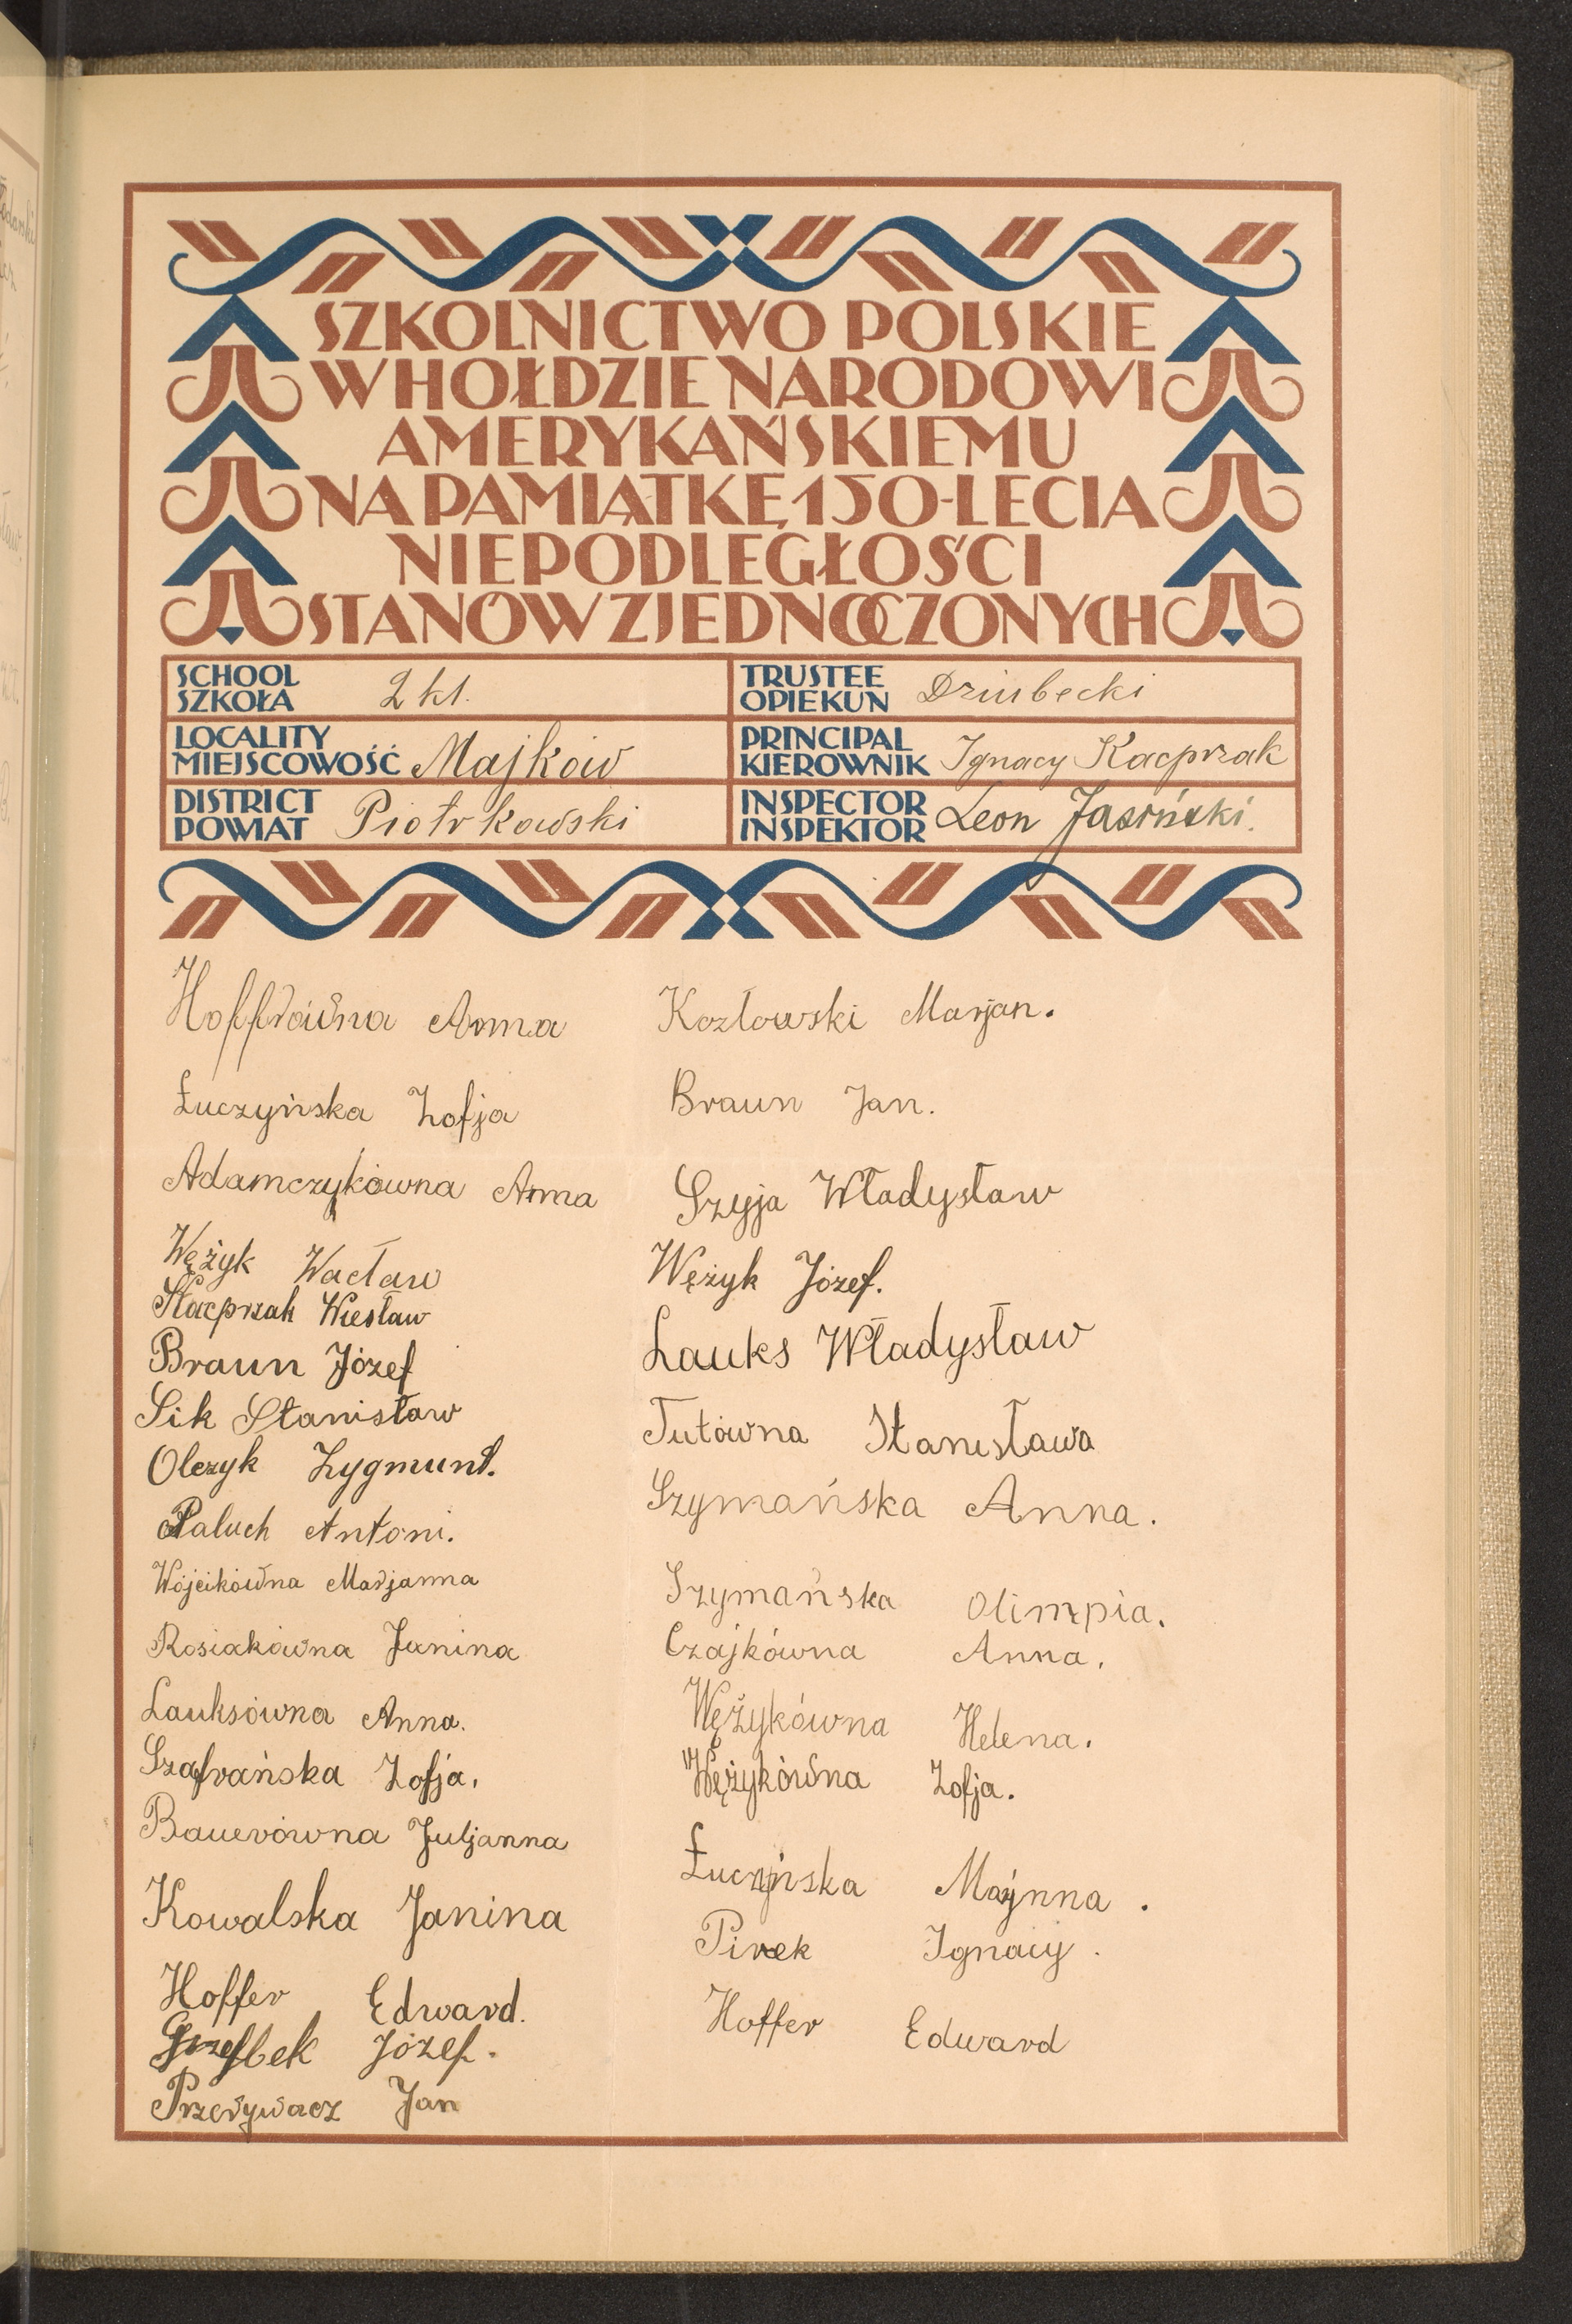 SZKOLNICTWO POLSKIE
W HOŁDZIE NARODOWI
AMERYKAŃSKIEMU
NA PAMIĄTKĘ 150-LECIA
NIEPODLEGŁOŚCI
STANÓW ZJEDNOCZONYCH
SCHOOL
SZKOŁA 2 kl.
TRUSTEE
OPIEKUN Dziubecki
LOCALITY
MIEJSCOWOŚĆ Majków
PRINCIPAL
KIEROWNIK Ignacy Kacprzak
DISTRICT
POWIAT Piotrkowski
INSPECTOR
INSPEKTOR Leon Jasiński.
Hoffrówna Anna
Łuczyńska Zofja
Adamczykówna Anna
Wężyk Wacław
Kacprzak Wiesław
Braun Józef
Sik Stanisław
Olczyk Zygmunt.
Paluch Antoni.
Wójcikówna Marjanna
Rosiakówna Janina
Lauksówna Anna.
Szafrańska Zofja.
Bauerówna Juljanna
Kowalska Janina
Hoffer Edward.
Józef.
Przerywacz Jan
Kozłowski Marjan.
Braun Jan.
Szyja Władysław
Wężyk Józef.
Lauks Władysław
Tutówna Stanisława
Szymańska Anna.
Szymańska Olimpia.
Czajkówna Anna.
Wężykówna Helena.
Wężykówna Zofja.
Łuczyńska
Pirek Ignacy.
Hoffer Edward